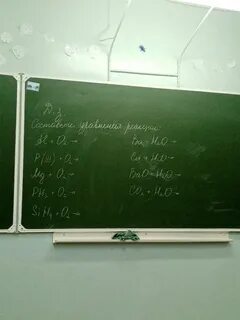 Д.з.
Составьте уравнения реакций:
Al + O₂ →
P(III) + O₂ →
Mg + O₂ →
PH₃ + O₂ →
SiH₄ + O₂ →
Ba + H₂O →
+ H₂O →
BaO + H₂O →
CO₂ + H₂O →